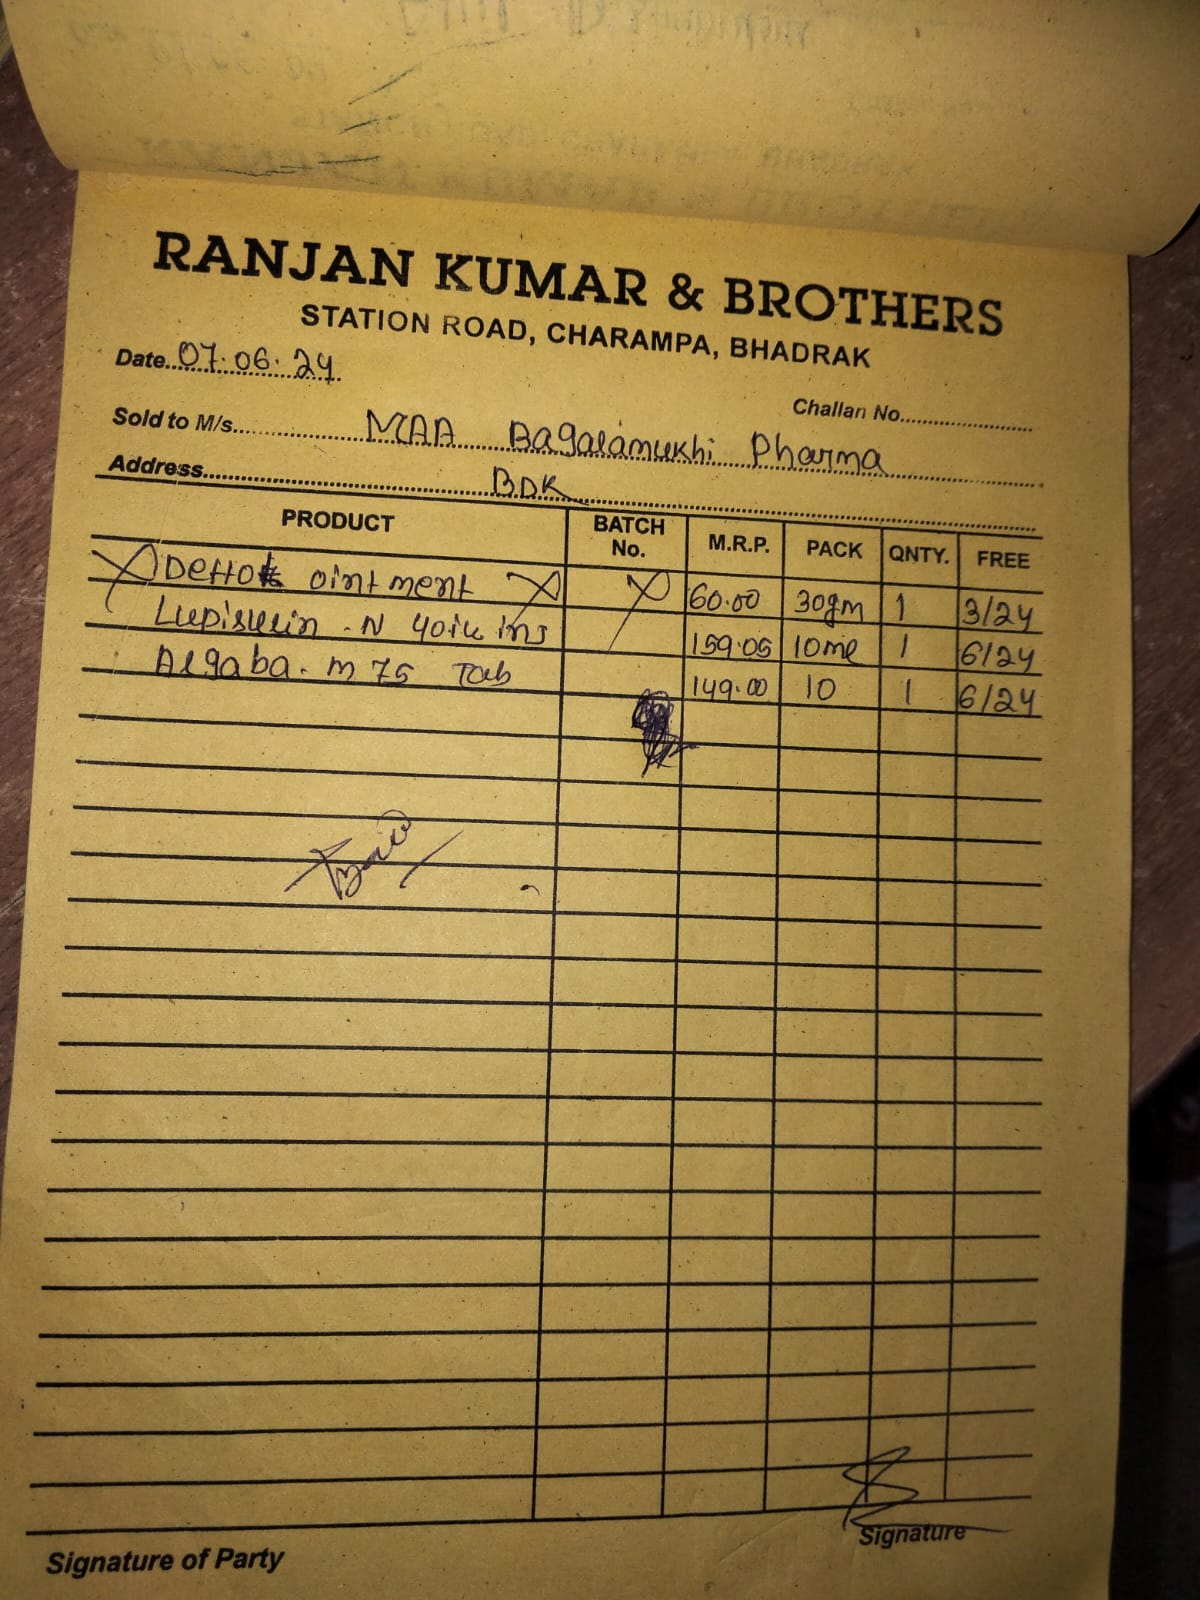 RANJAN KUMAR & BROTHERS
STATION ROAD, CHARAMPA, BHADRAK
Date 07.06.24
Challan No.
Sold to M/s. MAA Bagalamukhi Pharma
Address BDK
PRODUCT BATCH No. M.R.P. PACK QNTY. FREE
ointment 60.00 30gm 1 3/24
N 40iu inj 159.05 10ml 1 6/24
Algaba-M 75 Tab 149.00 10 1 6/24
Signature
Signature of Party